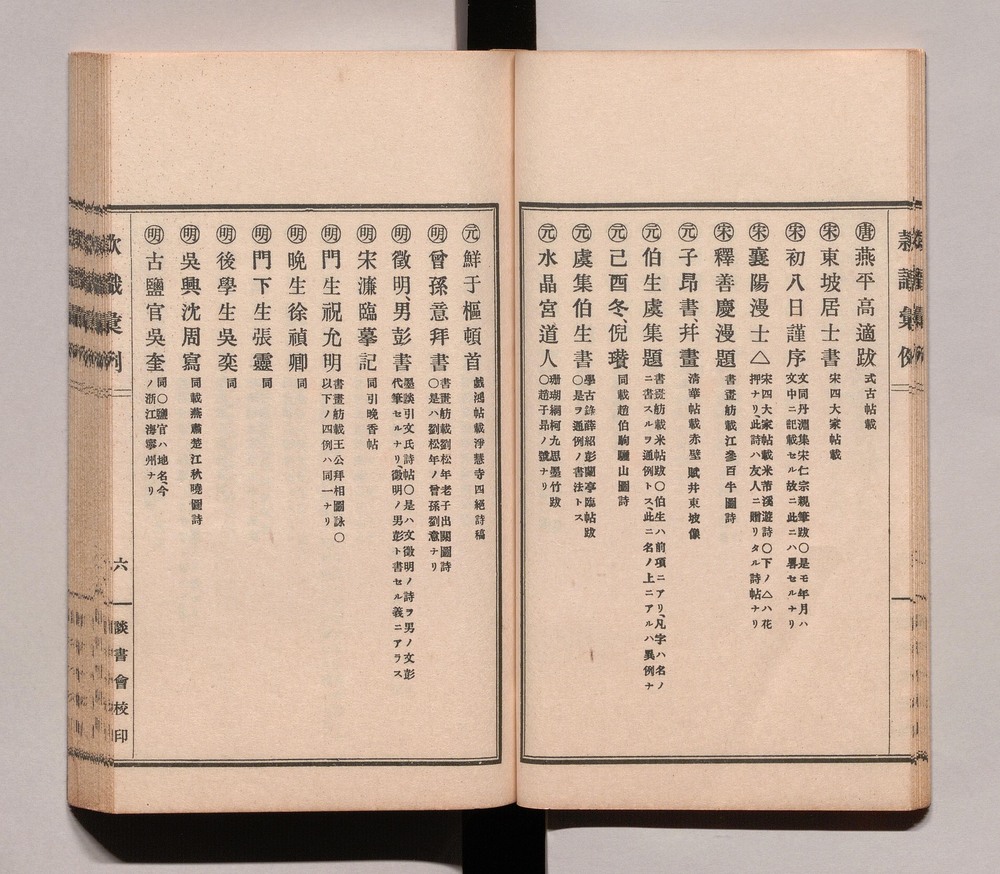 款識彙例
㊎唐 燕平高適跋 式古帖載
宋 東坡居士書 宋四大家帖載
宋 初八日謹序 文同丹淵集宋仁宗親筆跋〇是モ年月ハ
文中ニ記載セル故ニ此ニハ畧セルナリ
宋 襄陽漫士△ 宋四大家帖載米芾溪遊詩〇下ノ△ハ花
押ナリ、此詩ハ友人ニ贈リタル詩帖ナリ
宋 釋善慶漫題 書畫舫載江參百牛圖詩
元 子昂書、幷畫 清華帖載赤壁賦幷東坡像
元 伯生虞集題 書畫舫載米帖跋〇伯生ハ前項ニアリ、凡字ハ名ノ
ニ書スルヲ通例トス、此ニ名ノ上ニアルハ異例ナ
元 己酉冬、倪瓚 同載趙伯駒驪山圖詩
元 虞集伯生書 學古錄薛紹彭蘭亭臨帖跋
〇是ヲ通例ノ書法トス
元 水晶宮道人 珊瑚網柯九思墨竹跋
〇趙子昂ノ號ナリ
元 鮮于樞頓首 戲鴻帖載淨慧寺四絕詩稿
明 曾孫意拜書 書畫舫載劉松年老子出關圖詩
〇是ハ劉松年ノ曾孫劉意ナリ
明 徵明、男彭書 墨談引文氏詩帖〇是ハ文徵明ノ詩ヲ男ノ文彭
代筆セルナリ、徵明ノ男彭ト書セル義ニアラス
明 宋濂臨摹記 同引晚香帖
明 門生祝允明 書畫舫載王公拜相圖詠〇
以下ノ四例ハ同一ナリ
明 晚生徐禎卿 同
明 門下生張靈 同
明 後學生吳奕 同
明 吳興沈周寫 同載燕肅楚江秋曉圖詩
明 古鹽官吳奎 同〇鹽官ハ地名、今
ノ浙江海寧州ナリ
款識彙例
六
談書會校印